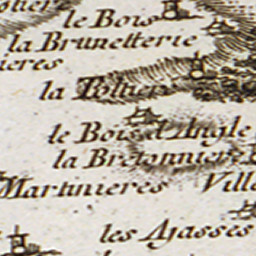 le Bois
la Brunetterie
ieres
la Poltiere
le Bois d'Angle
la Bretonniere
Martinieres Ville
les Ajasses